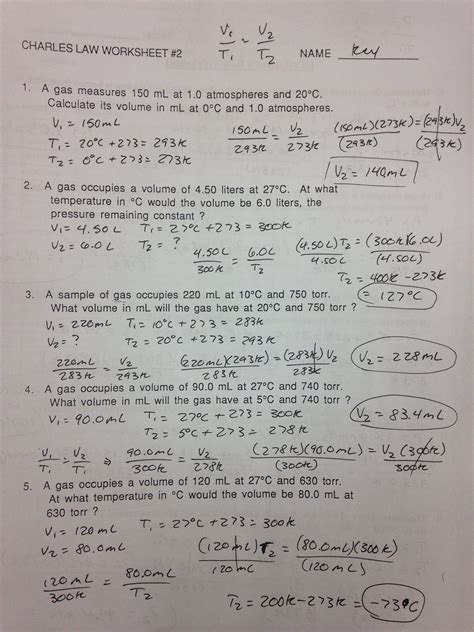 V₁/T₁ = V₂/T₂
CHARLES LAW WORKSHEET #2 NAME key
1. A gas measures 150 mL at 1.0 atmospheres and 20°C.
Calculate its volume in mL at 0°C and 1.0 atmospheres.
V₁ = 150mL
T₁ = 20°C + 273 = 293K
T₂ = 0°C + 273 = 273K
150mL/293K = V₂/273K (150mL)(273K)/(293K) = (293K)V₂/(293K)
V₂ = 140mL
2. A gas occupies a volume of 4.50 liters at 27°C. At what
temperature in °C would the volume be 6.0 liters, the
pressure remaining constant ?
V₁ = 4.50L T₁ = 27°C + 273 = 300K
V₂ = 6.0L T₂ = ?
4.50L/300K = 6.0L/T₂ (4.50L)T₂/4.50L = (300K)(6.0L)/(4.50L)
T₂ = 400K - 273K
= 127°C
3. A sample of gas occupies 220 mL at 10°C and 750 torr.
What volume in mL will the gas have at 20°C and 750 torr ?
V₁ = 220mL T₁ = 10°C + 273 = 283K
V₂ = ? T₂ = 20°C + 273 = 293K
220mL/283K = V₂/293K (220mL)(293K)/283K = (283K)V₂/283K V₂ = 228mL
4. A gas occupies a volume of 90.0 mL at 27°C and 740 torr.
What volume in mL will the gas have at 5°C and 740 torr ?
V₁ = 90.0mL T₁ = 27°C + 273 = 300K V₂ = 83.4mL
T₂ = 5°C + 273 = 278K
V₁/T₁ = V₂/T₂ ⇒ 90.0mL/300K = V₂/278K (278K)(90.0mL)/(300K) = V₂(300K)/300K
5. A gas occupies a volume of 120 mL at 27°C and 630 torr.
At what temperature in °C would the volume be 80.0 mL at
630 torr ?
V₁ = 120mL T₁ = 27°C + 273 = 300K
V₂ = 80.0mL
120mL/300K = 80.0mL/T₂ (120mL)T₂/120mL = (80.0mL)(300K)/(120mL)
T₂ = 200K - 273K = -73°C